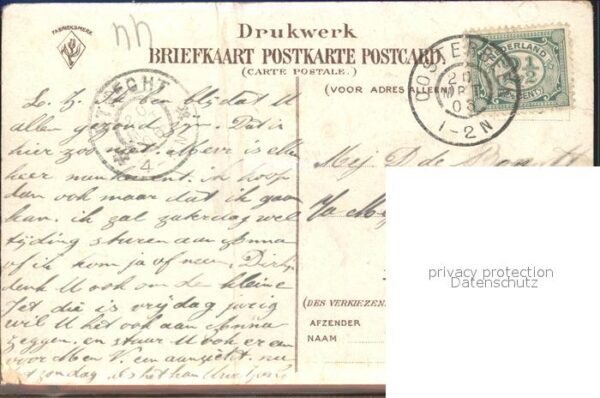 FABRIEKSMERK
Drukwerk
BRIEFKAART POSTKARTE POSTCARD.
(CARTE POSTALE.)
(VOOR ADRES ALLEEN)
NEDERLAND
2½
CENT
OOSTERBEEK
20
1-2N
UTRECHT
4
L. Z. Ik ben blij dat U
allen gezond zijn. Dat is
hier zoo niet. is
heer ik hoop
dan ook maar dat ik gaan
kan. ik zal zaterdag wel
tijding sturen aan Anna
of ik kom ja of neen, Dirk
denk U ook om de kleine
Jet die is vrijdag jarig
wil U het ook aan Anna
zeggen. en stuur U ook er een
voor Men V. een aanzicht.
zondag als het kan
Mej D de
p/a
(DES VERKIEZEN
AFZENDER
NAAM
privacy protection
Datenschutz